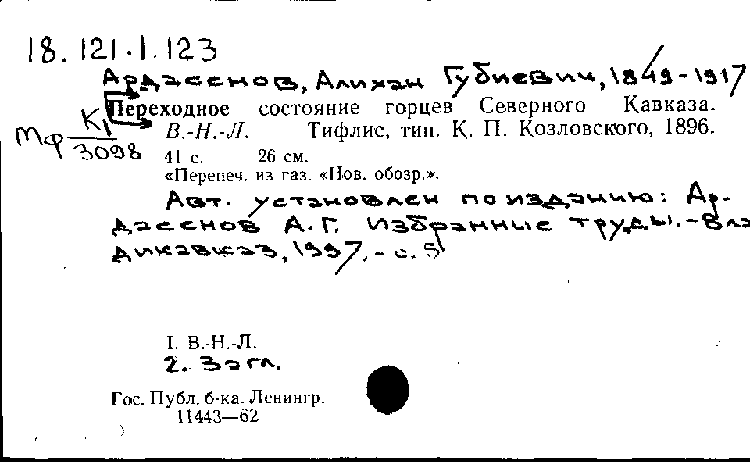 18.121.1.123
Ардасенов, Алихан Губиевич, 1849-1917
Переходное состояние горцев Северного Кавказа.
Мф К1/3098
В.-Н.-Л. Тифлис, тип. К. П. Козловского, 1896.
41 с. 26 см.
«Перепеч. из газ. «Нов. обозр.».
Авт. установлен по изданию: Ар-
дасенов А.Г. Избранные труды.-Вла
дикавказ, 1997,-с. 5
I. В.-Н.-Л.
2. Загл.
Гос. Публ. б-ка. Ленингр.
11443—62